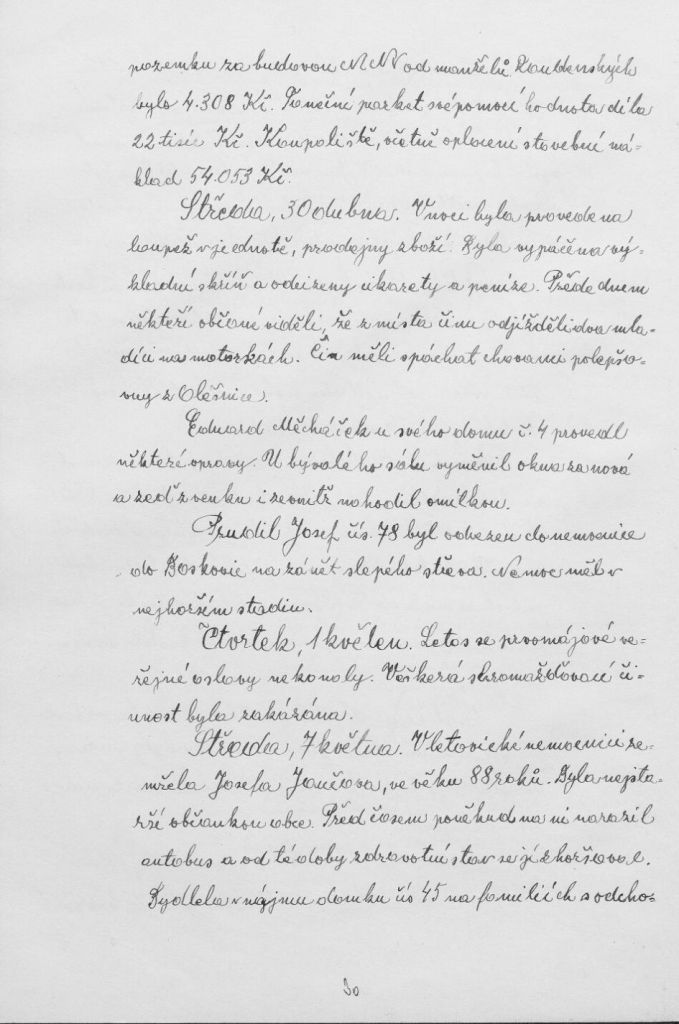 pozemku za budovou MNV od manželů Loudenských
bylo 4.308 Kč. Taneční parket svépomocí hodnota díla
22 tisíc Kč. Koupaliště, včetně oplocení stavební ná-
klad 54.053 Kč.
Středa, 30 dubna. V noci byla provedena
loupež v jednotě, prodejny zboží. Byla vypáčena vý-
kladní skříň a odcizeny cikarety a peníze. Přede dnem
někteří občané viděli, že z místa činu odjížděli dva mla-
díci na motorkách. Čin měli spáchat chovanci polepšo-
vny z Olešnice.
Eduard Měcháček u svého domu č. 4 provedl
některé opravy. U bývalého sálu vyměnil okna za nová
a zeď z venku i zevnitř nahodil omítkou.
Prudil Josef čís. 78 byl odvezen do nemocnice
do Boskovic na zánět slepého střeva. Nemoc měl v
nejhorším stadiu.
Čtvrtek, 1 květen. Letos se prvomájové ve-
řejné oslavy nekonaly. Veškerá shromažďovací či-
nnost byla zakázána.
Středa, 7 května. V letovické nemocnici ze-
mřela Josefa Jančova, ve věku 88 roků. Byla nejsta-
rší občankou obce. Před časem poněkud na ni narazil
autobus a od té doby zdravotní stav se jí zhoršoval.
Bydlela v nájmu domku čís 45 na familiích s odcho-
30